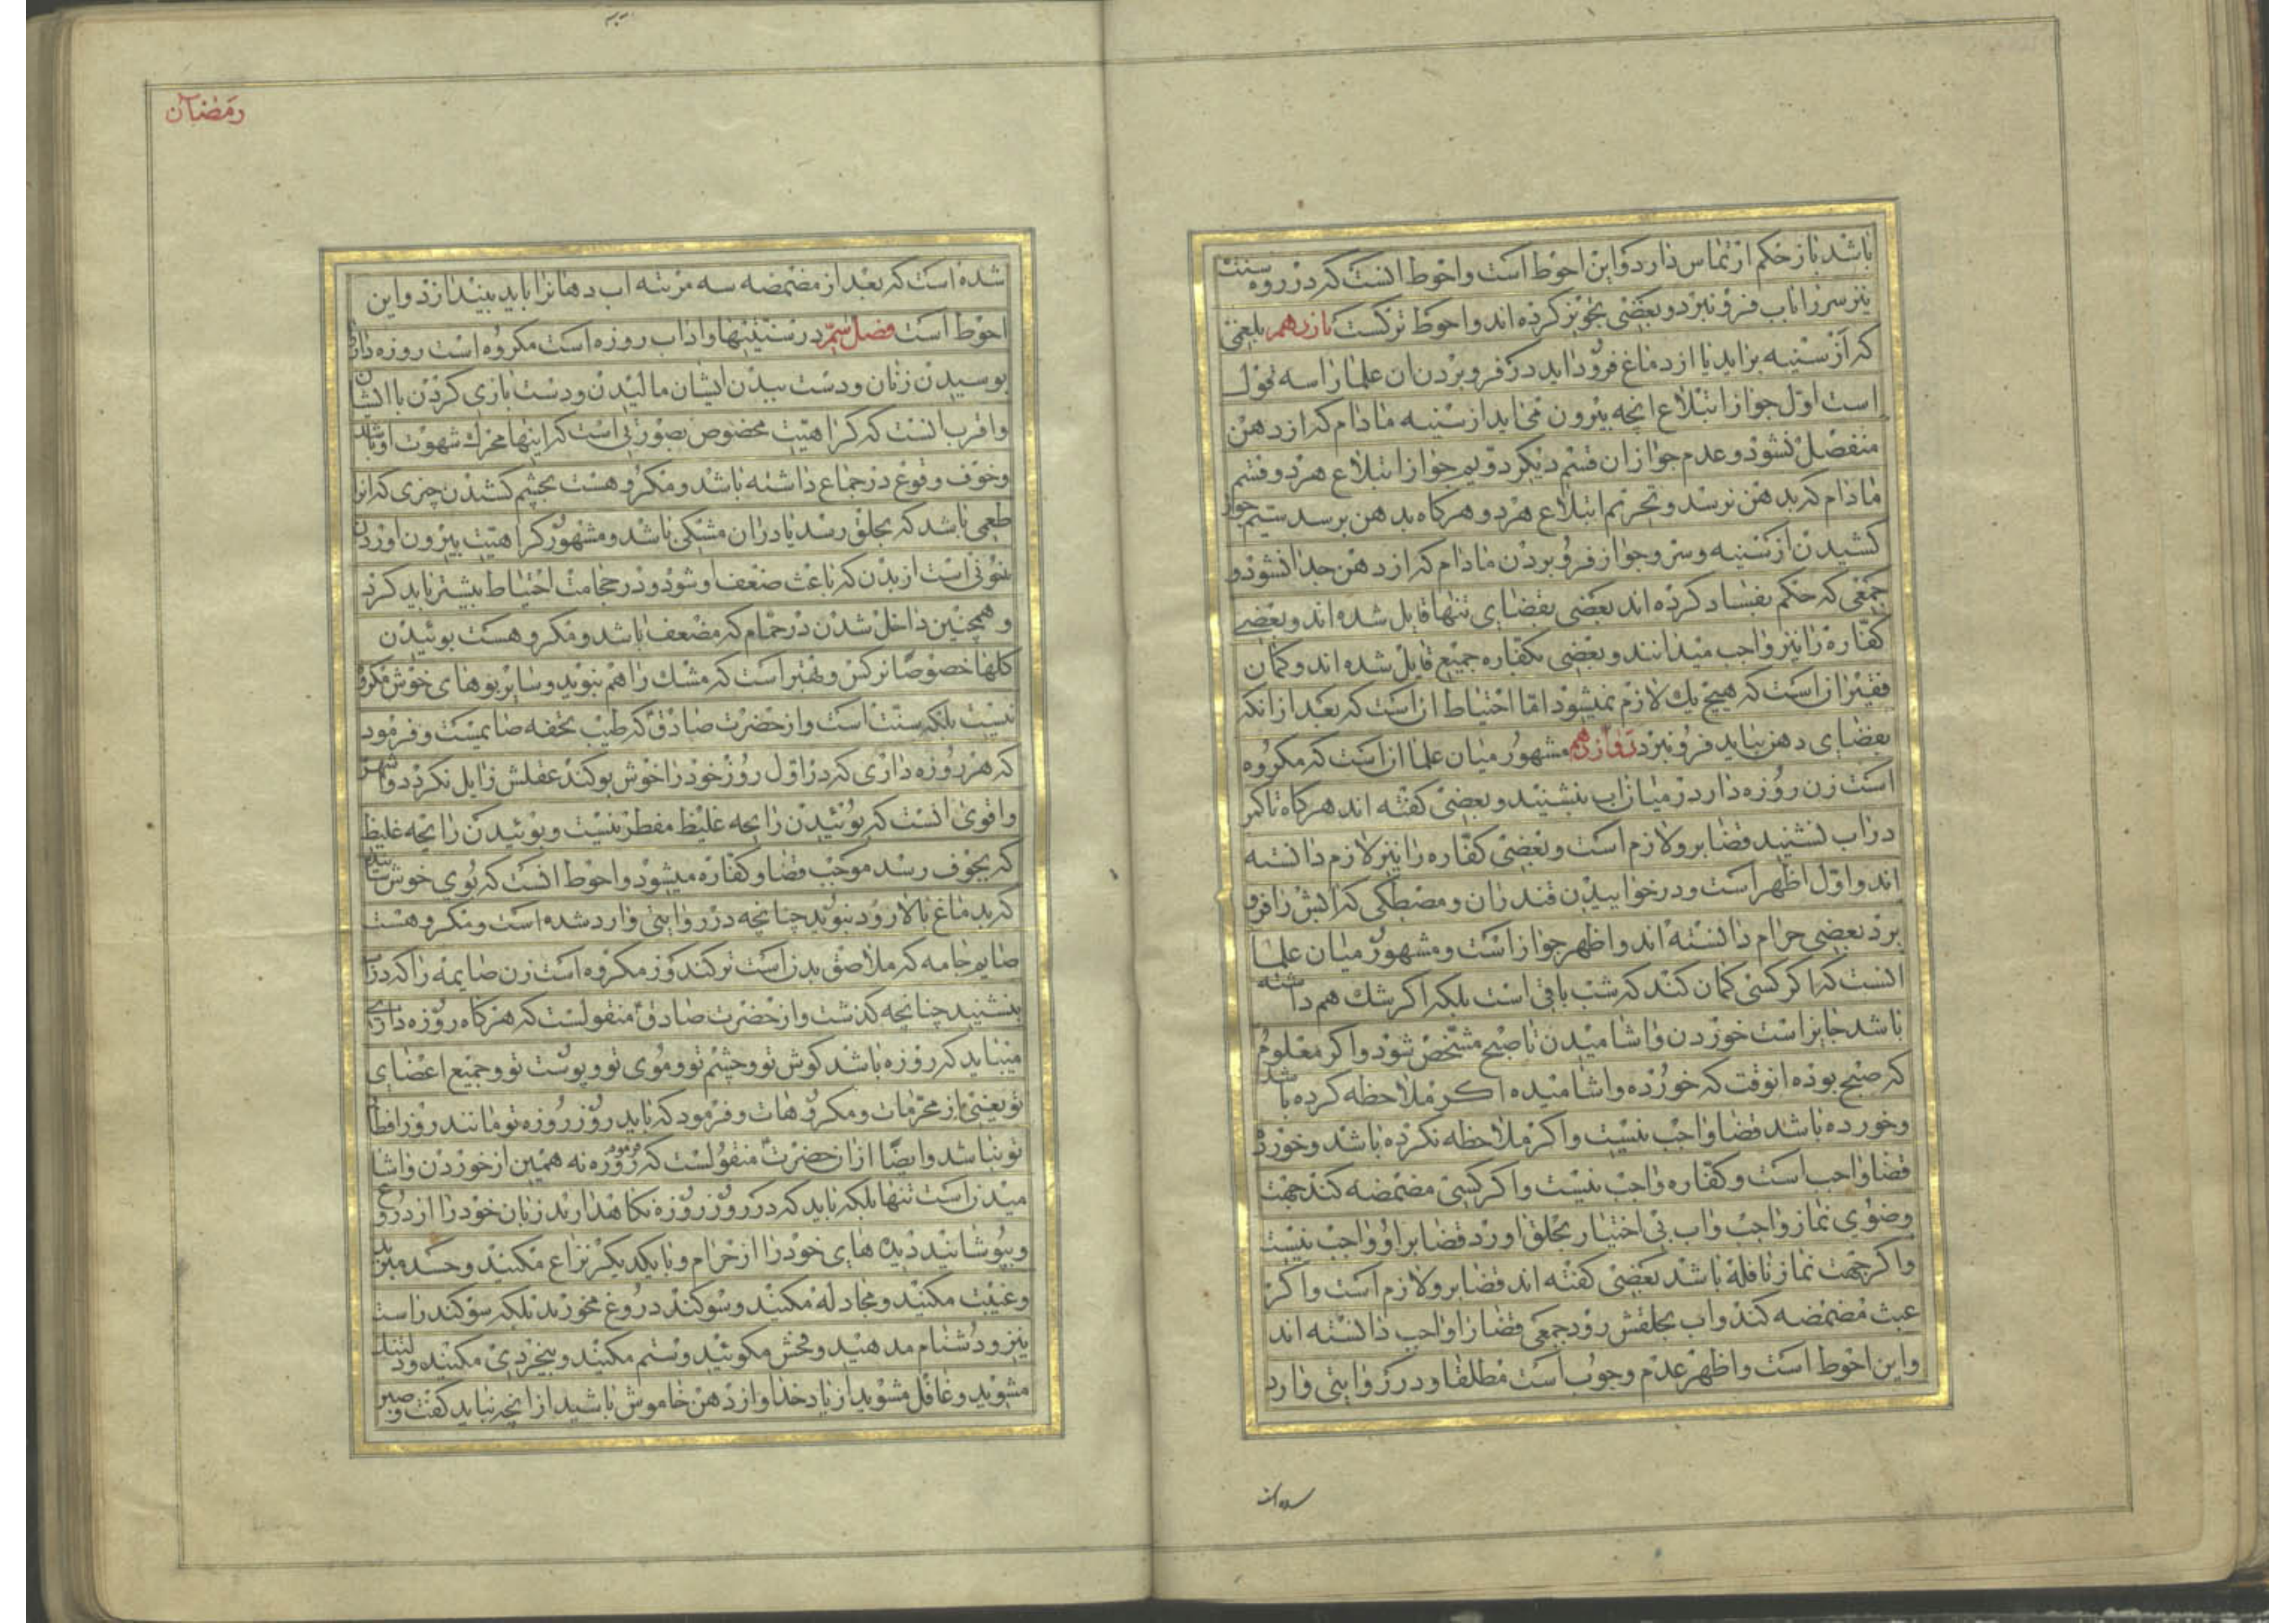 باشد باز حکم ارتماس دارد و این احوط است و احوط انست که در روزه سنت
نیز سر را باب فرو نبرد و بعضی تجویز کرده اند و احوط ترکست یازدهم بلغمی
که از سینه براید یا از دماغ فرود اید در فرو بردن ان علما را سه قول
است اول جواز ابتلاع انچه بیرون می اید از سینه مادام که از دهن
منفصل نشود و عدم جواز ان قسم دیگر دویم جواز ابتلاع هر دو قسم
مادام که بدهن نرسد و تحریم ابتلاع هر دو هرکاه بدهن برسد سیم جواز
کشیدن از سینه و سر و جواز فرو بردن مادام که از دهن جدا نشود و
جمعی که حکم بفساد کرده اند بعضی بقضای تنها قایل شده اند و بعضے
کفاره را نیز واجب میدانند و بعضی بکفاره جمیع قایل شده اند و کمان
فقیر از است که هیچ یك لازم نمیشود اما احتیاط ان است که بعد از انکه
بفضای دهن بیاید فرو نبرد دوازدهم مشهور میان علما ان است که مکروه
است زن روزه دار در میان اب بنشیند و بعضی کفته اند هرکاه تا کمر
در اب نشیند قضا بر و لازم است و بعضی کفاره را نیز لازم دانسته
اند و اول اظهر است و در خوابیدن قندران و مصطکی که ابش را فرو
برد بعضی حرام دانسته اند و اظهر جواز است و مشهور میان علما
انست که اکر کسی کمان کند که شب باقی است بلکه اکر شك هم داشته
باشد جایز است خوردن و اشامیدن تا صبح مشخص شود و اکر معلوم شد
که صبح بوده انوقت که خورده و اشامیده اکر ملاحظه کرده با
و خورده باشد قضا واجب نیست و اکر ملاحظه نکرده باشد و خورد
قضا واجب است و کفاره واجب نیست و اکر کسی مضمضه کند جهت
وضوی نماز واجب و اب بی اختیار بحلق او رود قضا بر او واجب نیست
و اکر جهت نماز نافله باشد بعضی کفته اند قضا بر و لازم است و اکر
عبث مضمضه کند و اب بحلقش رود جمعی قضا را واجب دانسته اند
و این احوط است و اظهر عدم وجوب است مطلقا و در روایتی وارد
شده است
رمضان
شده است که بعد از مضمضه سه مرتبه اب دهانرا باید بیندازد و این
احوط است فصل سیم در سنتیها و اداب روزه است مکروه است روزه دار
بوسیدن زنان و دست ببدن ایشان مالیدن و دست بازی کردن با ایشان
و اقرب انست که کراهیت مخصوص بصورتی است که اینها محرك شهوت او باشد
و خوف وقوع در جماع داشته باشد و مکروهست بچشم کشیدن چیزی که انرا
طعمی باشد که بحلق رسد یا در ان مشکی باشد و مشهور کراهیت بیرون اوردن
خونی است از بدن که باعث ضعف او شود و در حجامت احتیاط بیشتر باید کرد
و همچنین داخل شدن در حمام که مضعف باشد و مکروهست بوئیدن
کلها خصوصا نرکس و بهتر است که مشك را هم نبوید و سایر بوهای خوش مکروه
نیست بلکه سنت است و از حضرت صادق که طیب تحفه صایمست و فرمود
که هر روزه داری که در اول روز خود را خوش بو کند عقلش زایل نکردد و اشهر
و اقوی انست که بوئیدن رایحه غلیظ مفطر نیست و بوئیدن رایحه غلیظ
که بجوف رسد موجب قضا و کفاره میشود و احوط انست که بوی خوش
که بدماغ بالا رود نبوید چنانچه در روایتی وارد شده است و مکروهست
صایم جامه که ملاصق بدن است تر کند و نیز مکروه است زن صایمه را که در اب
بنشیند چنانچه کذشت و از حضرت صادق منقولست که هرکاه روزه داری
میباید که روزه باشد کوش تو و چشم تو و موی تو و پوست تو و جمیع اعضای
تو یعنی از محرمات و مکروهات و فرمود که باید روز روزه تو مانند روز افطا
تو نباشد و ایضا از ان حضرت منقولست که فرمود روزه نه همین از خوردن و اشا
میدن است تنها بلکه باید که در روز روزه نکاهدارید زبان خود را از دروغ
و بپوشانید دیده های خود را از حرام و با یکدیکر نزاع مکنید و حسد مبرید
و غیبت مکنید و مجادله مکنید و سوکند دروغ مخورید بلکه سوکند راست
نیز و دشنام مدهید و فحش مکوئید و ستم مکنید و بیخردی مکنید و دلتنك
مشوید و غافل مشوید از یاد خدا و از دهن خاموش باشید از انچه نباید کفت و صبر